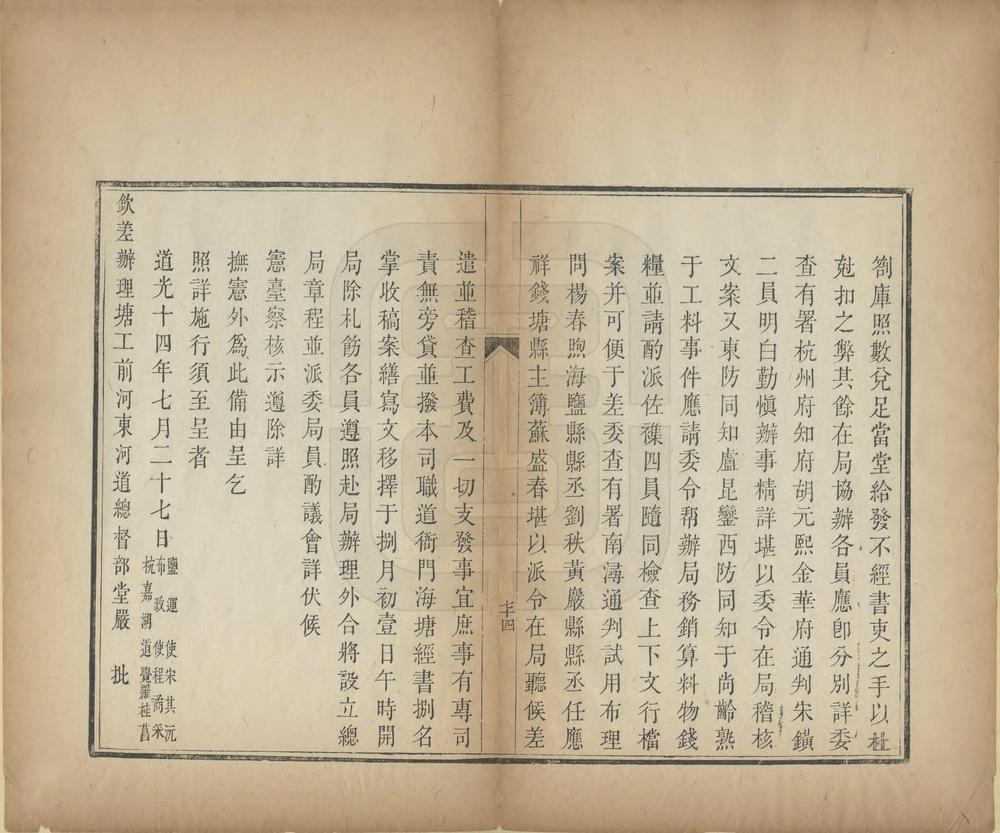 劄庫照數兌足當堂給發不經書吏之手以杜
尅扣之弊其餘在局協辦各員應卽分別詳委
查有署杭州府知府胡元熙金華府通判朱鐄
二員明白勤愼辦事精詳堪以委令在局稽核
文案又東防同知盧昆鑾西防同知于尚齡熟
于工料事件應請委令帮辦局務銷算料物錢
糧並請酌派佐襍四員隨同檢查上下文行檔
案并可便于差委查有署南潯通判試用布理
問楊春煦海鹽縣縣丞劉秩黃巖縣縣丞任應
祥錢塘縣主簿蘇盛春堪以派令在局聽候差
遣並稽查工費及一切支發事宜庶事有專司
責無旁貸並撥本司職道衙門海塘經書捌名
掌收稿案繕寫文移擇于捌月初壹日午時開
局除札飭各員遵照赴局辦理外合將設立總
局章程並派委局員酌議會詳伏候
憲臺察核示遵除詳
撫憲外爲此備由呈乞
照詳施行須至呈者
道光十四年七月二十七日
鹽運使宋其沅
布政使程矞采
杭嘉湖道覺羅桂菖
欽差辦理塘工前河東河道總督部堂嚴　批